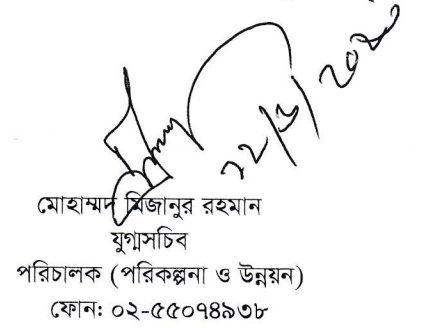 মোহাম্মদ মিজানুর রহমান
যুগ্মসচিব
পরিচালক (পরিকল্পনা ও উন্নয়ন)
ফোন: ০২-৫৫০৭৪৯৩৮